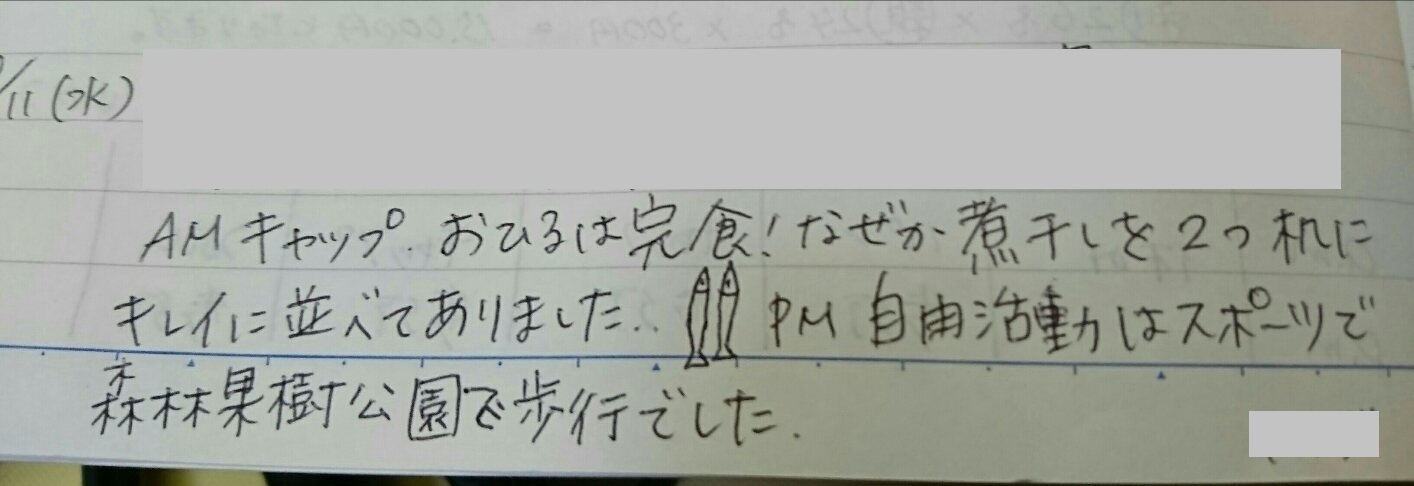 /11(水)
AMキャップ.おひるは完食!なぜか煮干しを2つ机に
キレイに並べてありました.. PM 自由活動はスポーツで
森林果樹公園で歩行でした.